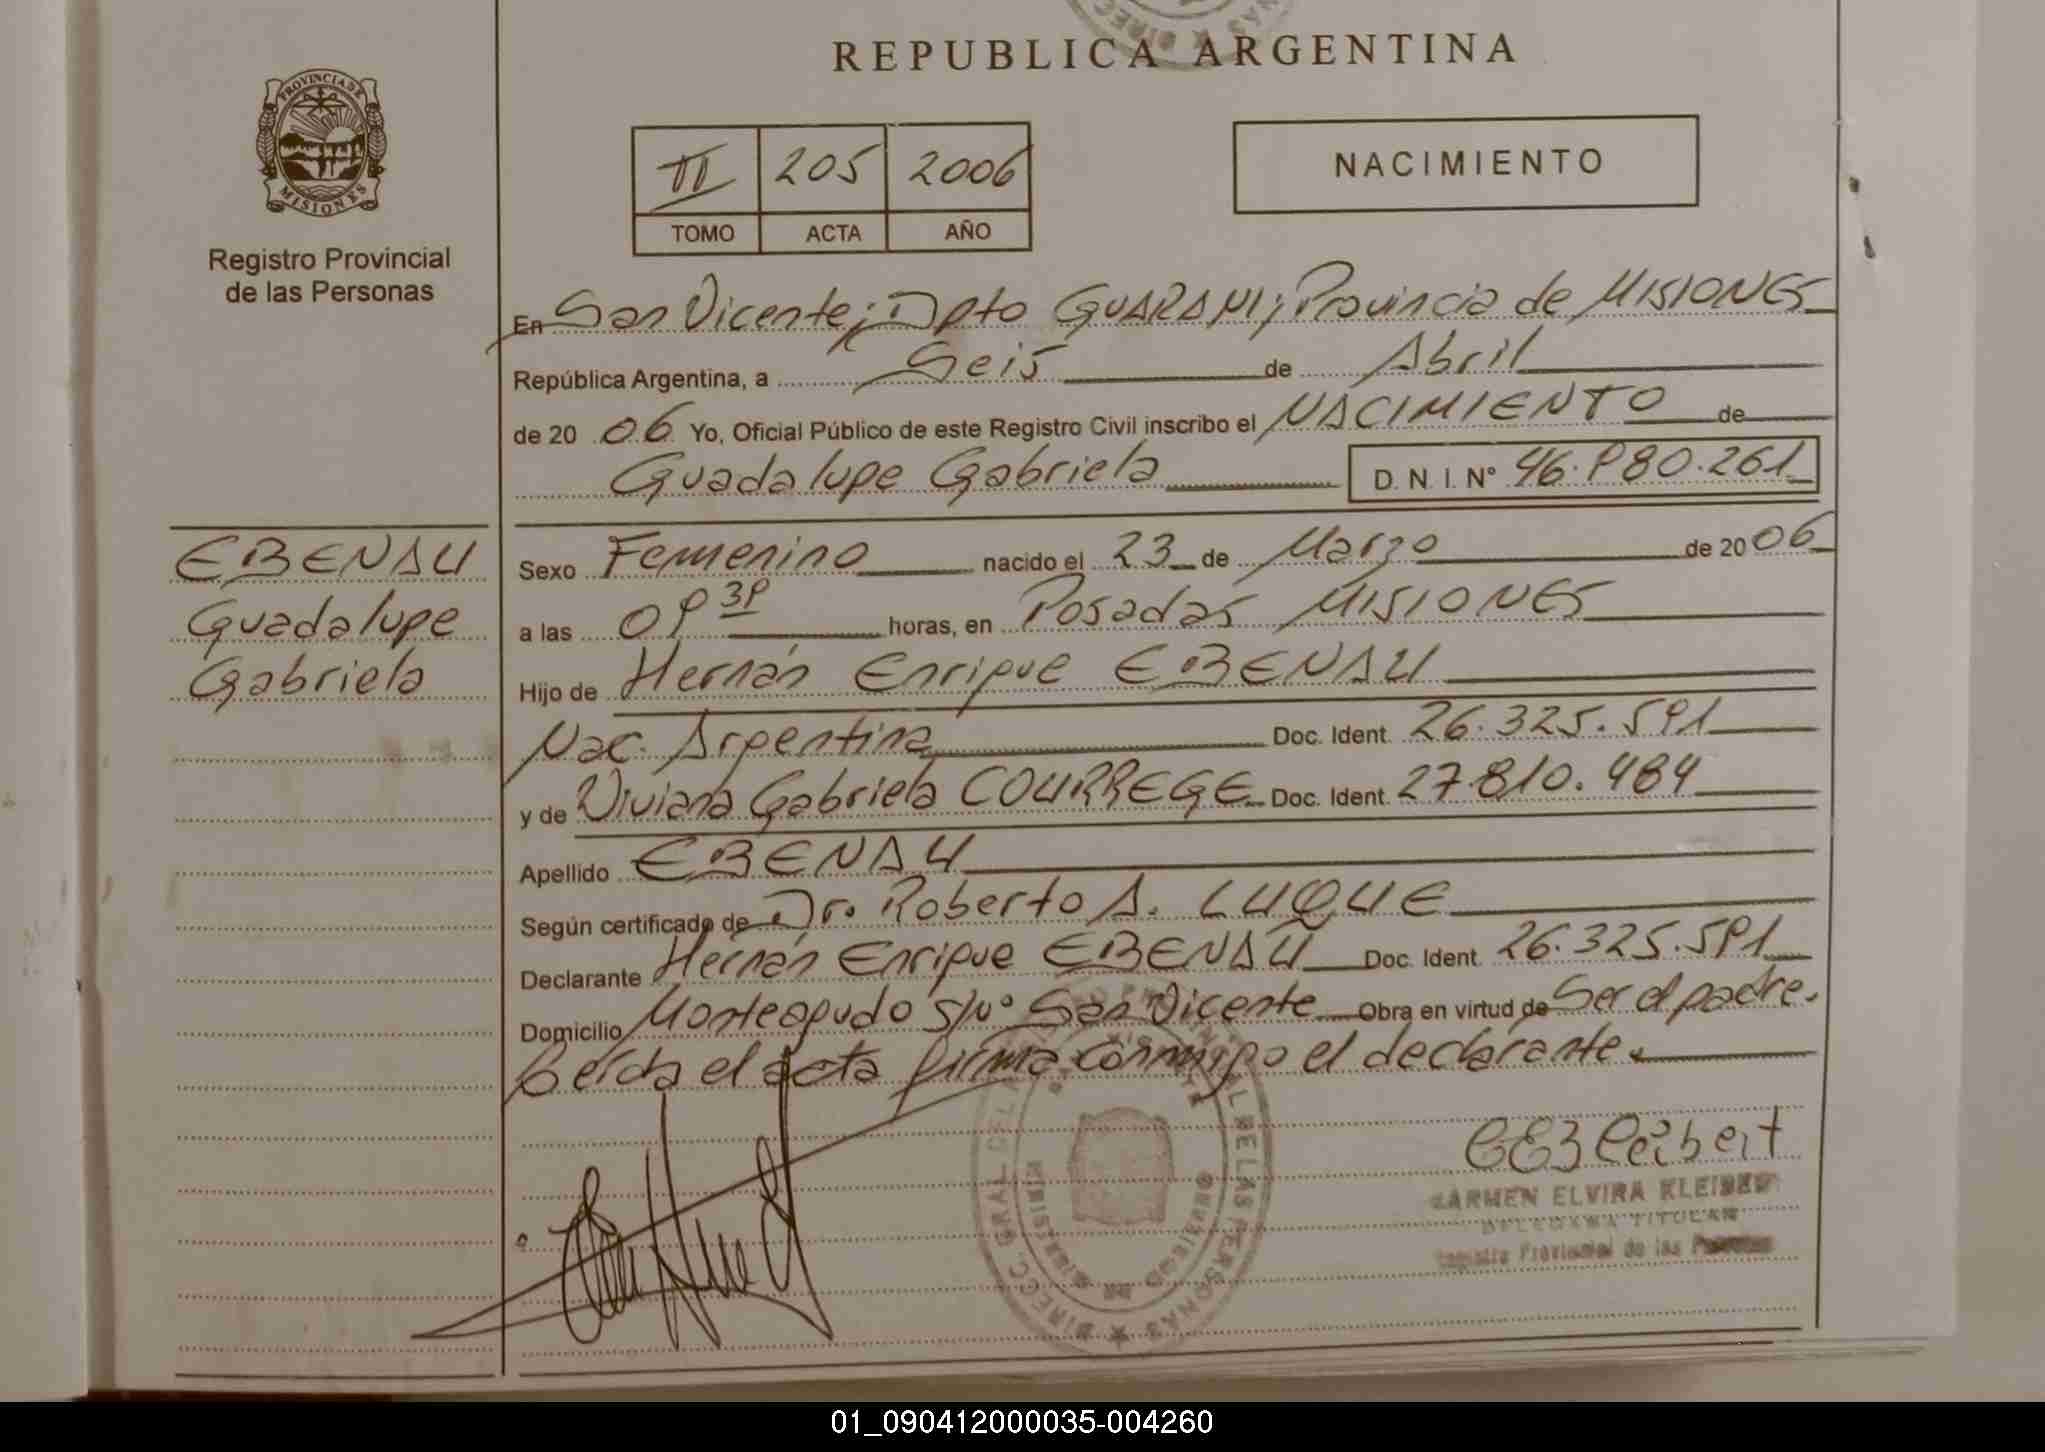 REPUBLICA ARGENTINA
PROVINCIA DE
MISIONES
Registro Provincial
de las Personas
II 205 2006
TOMO ACTA AÑO
NACIMIENTO
En San Vicente; Dpto GUARANI; Provincia de MISIONES
República Argentina, a Seis de Abril
de 20 06 Yo, Oficial Público de este Registro Civil inscribo el NACIMIENTO de
Guadalupe Gabriela D.N.I. Nº 46.980.261
EBENAU
Guadalupe
Gabriela
Sexo Femenino nacido el 23 de Marzo de 20 06
a las 09 39 horas, en Posadas MISIONES
Hijo de Hernán Enrique EBENAU
Nac. Argentina Doc. Ident. 26.325.591
y de Viviana Gabriela COURREGE Doc. Ident. 27.810.484
Apellido EBENAU
Según certificado de Dr. Roberto A. LUQUE
Declarante Hernán Enrique EBENAU Doc. Ident. 26.325.591
Domicilio Monteagudo s/nº San Vicente Obra en virtud de Ser el padre.
Leída el acta firma conmigo el declarante.
CARMEN ELVIRA KLEIBERT
DELEGADA TITULAR
Registro Provincial de las Personas
01_090412000035-004260